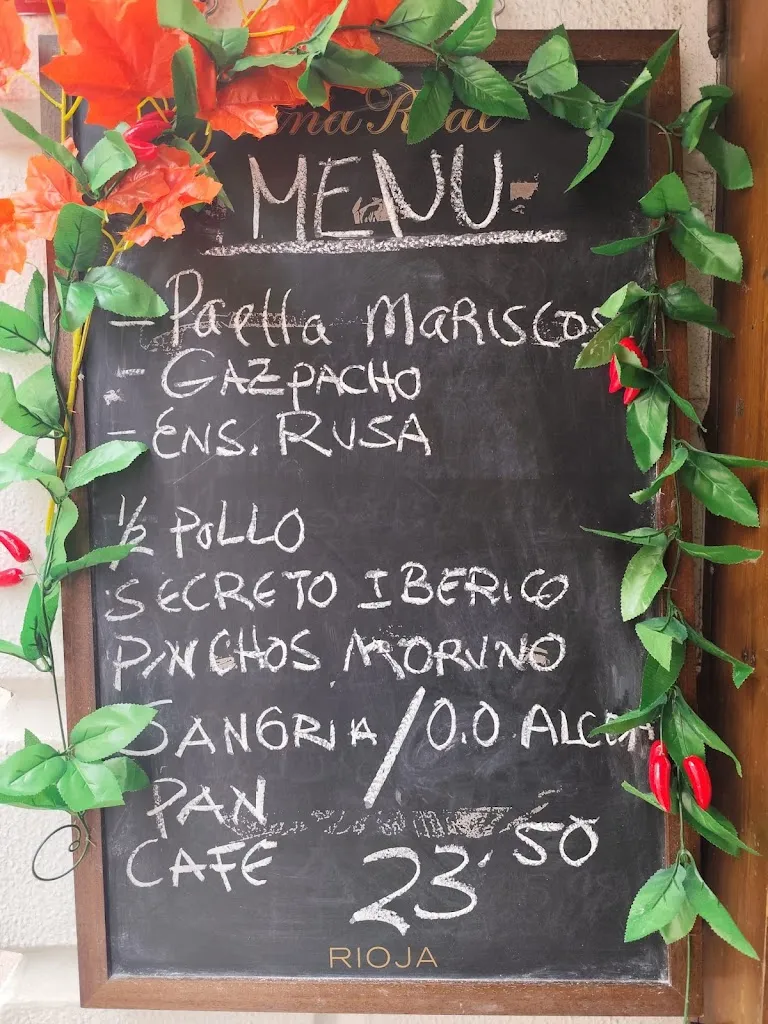 MENU
- Paella MARISCOS
- GAZPACHO
- ENS. RUSA
1/2 POLLO
SECRETO IBERICO
PINCHOS MORUNO
SANGRIA / 0.0 ALCOH
PAN
CAFE
23'50
RIOJA